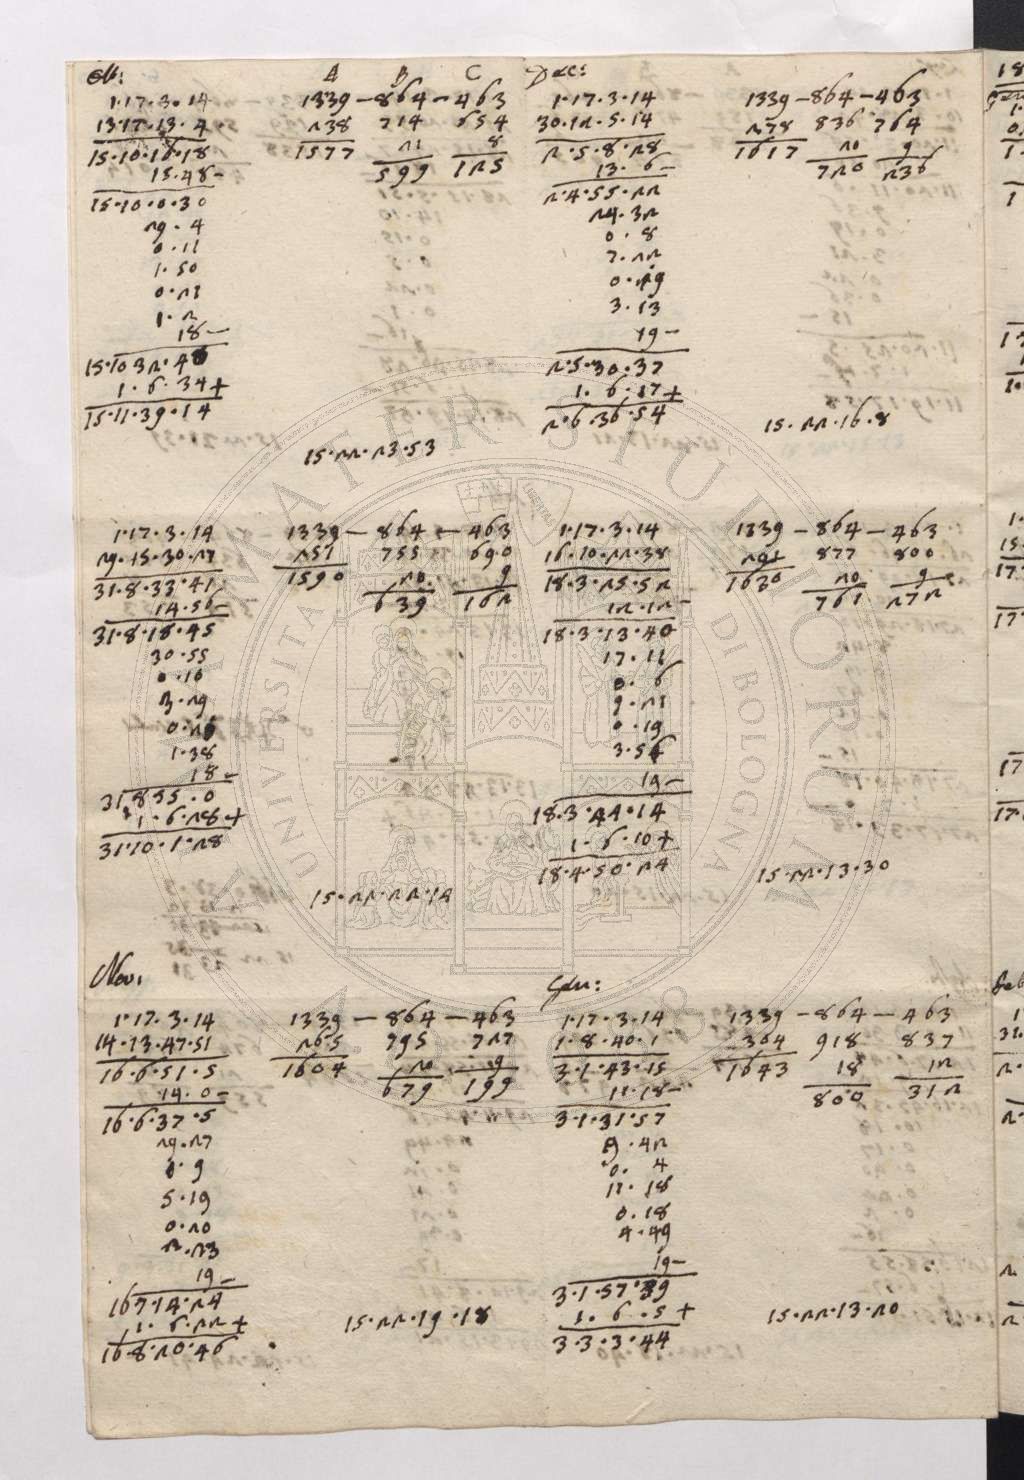 8b:
1·17·3·14
13·17·13·4
15·10·16·18
15·48–
15·10·0·30
29·4
0·11
1·50
0·21
1·2
18–
15·10 32·40
1·6·34+
15·11·39·14
A B C
1339–864–463
238 714 654
1577 21 8
599 125
15·22·23·53
Dec:
1·17·3·14
30·12·5·14
2·5·8·28
13·6–
2·4·55·22
24·32
0·8
7·22
0·19
3·13
19–
2·5·30·37
1·6·17+
2·6·36·54
1339–864–463
278 836 764
1617 20 9
720 236
15·22·16·8
1·17·3·14
29·15·30·27
31·8·33·41
14·56–
31·8·18·45
30·55
0·10
3·29
1·38
18–
31·8 55·0
1·6·28+
31·10·1·28
1339–864–463
251 755 690
1590 20 9
639 162
15·22·22·14
1·17·3·14
16·10·22·38
18·3·25·52
12·12–
18·3·13·40
17·11
0·6
9·21
0·19
3·56
19–
18·3·44·14
1·6·10+
18·4·50·24
1339–864–463
291 877 800
1630 20 9
761 272
15·22·13·30
Nov:
1·17·3·14
14·13·47·51
16·6·51·5
14·0–
16·6·37·5
29·27
0·9
5·19
0·20
2·23
19–
16 7·14·24
1·6·22+
16·8·20·46
1339–864–463
265 795 727
1604 20 9
679 199
15·22·19·18
Gen:
1·17·3·14
1·8·40·1
3·1·43·15
11·18–
3·1·31·57
9·42
0·4
11·18
0·18
4·49
19–
3·1·57·39
1·6·5+
3·3·3·44
1339–864–463
304 918 837
1643 18 12
800 312
15·22·13·20
ALMA MATER STUDIORUM
UNIVERSITÀ DI BOLOGNA